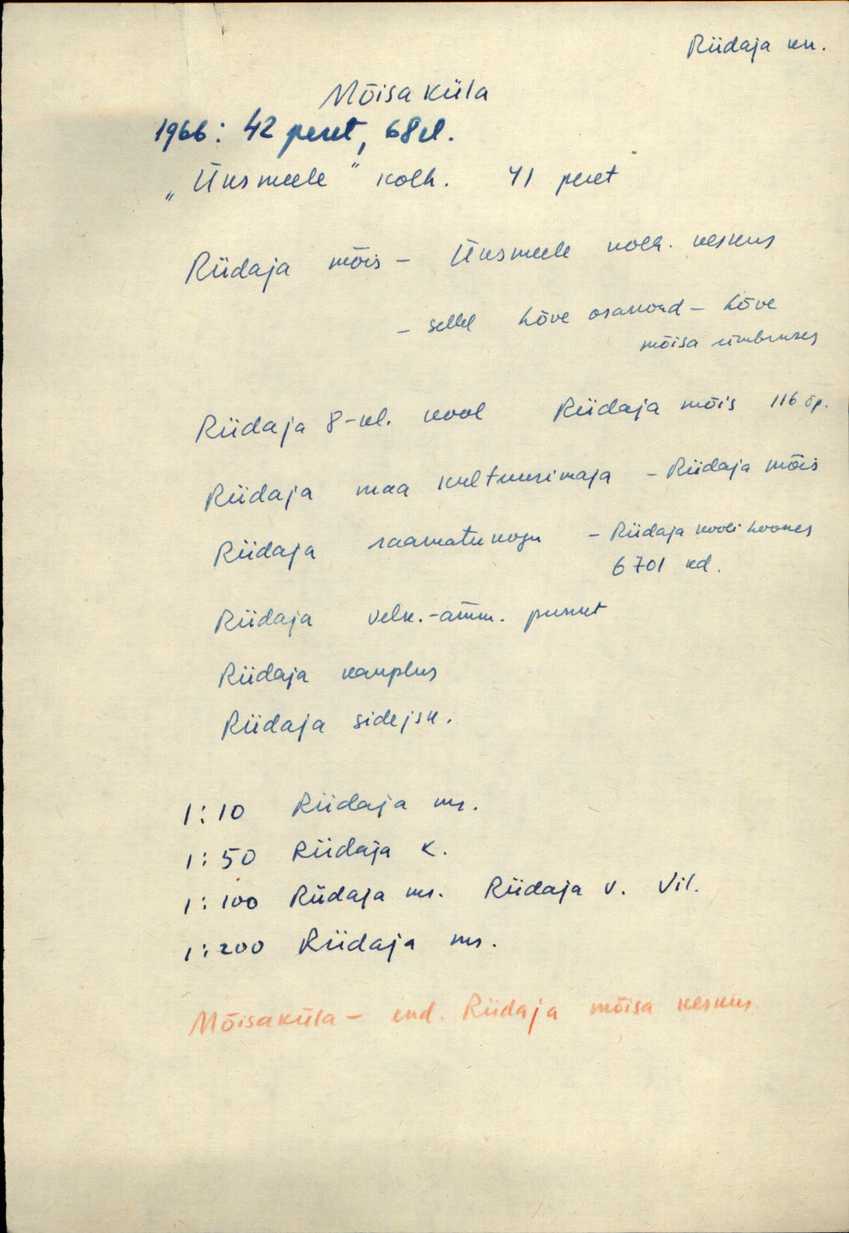 Riidaja kn.
Mõisaküla
1966: 42 peret, 68 el.
„Üksmeele" kolh. 41 peret
Riidaja mõis – Üksmeele kolh. keskus
– sellel Lõve osakond – Lõve
mõisa ümbruses
Riidaja 8-kl. kool Riidaja mõis 116 õp.
Riidaja maa kultuurimaja – Riidaja mõis
Riidaja raamatukogu – Riidaja kooli hoones
6701 kd.
Riidaja velsk.-ämm. punkt
Riidaja kauplus
Riidaja sidejsk.
1:10 Riidaja ms.
1:50 Riidaja k.
1:100 Riidaja ms. Riidaja v. Vil.
1:200 Riidaja ms.
Mõisaküla – end. Riidaja mõisa keskus